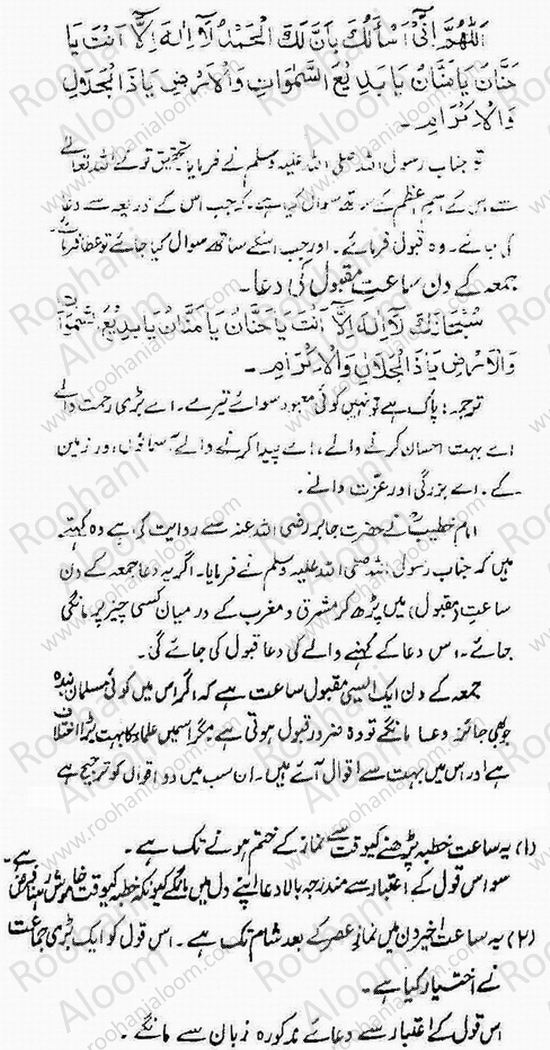 اَللّٰهُمَّ اِنِّیْ اَسْأَلُكَ بِاَنَّ لَكَ الْحَمْدُ لَآ اِلٰهَ اِلَّآ اَنْتَ یَا
حَنَّانُ یَا مَنَّانُ یَا بَدِیْعَ السَّمٰوَاتِ وَالْاَرْضِ یَا ذَا الْجَلَالِ
وَالْاِكْرَامِ ۔
تو جناب رسول اللہ صلی اللہ علیہ وسلم نے فرمایا تحقیق تو نے اللہ تعالےٰ
سے اس کے اسم اعظم کے ساتھ سوال کیا ہے۔ کہ جب اس کے ذریعہ سے دعا
کی جائے۔ وہ قبول فرمائے۔ اور جب اسکے ساتھ سوال کیا جائے تو عطا فرمائے۔
جمعہ کے دن ساعتِ مقبول کی دعا۔
سُبْحَانَكَ لَآ اِلٰهَ اِلَّآ اَنْتَ یَا حَنَّانُ یَا مَنَّانُ یَا بَدِیْعَ السَّمٰوَاتِ
وَالْاَرْضِ یَا ذَا الْجَلَالِ وَالْاِكْرَامِ ۔
ترجمہ: پاک ہے تو نہیں کوئی معبود سوائے تیرے۔ اے بڑی رحمت والے
اے بہت احسان کرنے والے، اے پیدا کرنے والے آسمانوں اور زمین
کے۔ اے بزرگی اور عزت والے۔
امام خطیبؒ نے حضرت جابر رضی اللہ عنہ سے روایت کی ہے وہ کہتے
ہیں کہ جناب رسول اللہ صلی اللہ علیہ وسلم نے فرمایا۔ اگر یہ دعا جمعہ کے دن
ساعتِ (مقبول) میں پڑھ کر مشرق و مغرب کے درمیان کسی چیز پر مانگی
جائے۔ اس دعا کے کہنے والے کی دعا قبول کی جائے گی۔
جمعہ کے دن ایک ایسی مقبول ساعت ہے کہ اگر اس میں کوئی مسلمان بندہ
جو بھی جائز دعا مانگے تو وہ ضرور قبول ہوتی ہے مگر اسمیں علماء کا بہت بڑا اختلاف
ہے اور اس میں بہت سے اقوال آئے ہیں۔ ان سب میں دو اقوال کو ترجیح ہے
(۱) یہ ساعت خطبہ پڑھنے کیوقت سے نماز کے ختم ہونے تک ہے۔
سو اس قول کے اعتبار سے مندرجہ بالا دعا اپنے دل میں مانگے کیونکہ خطبہ کیوقت خاموش رہنا فرض ہے۔
(۲) یہ ساعت اخیر دن میں نماز عصر کے بعد شام تک ہے۔ اس قول کو ایک بڑی جماعت
نے اختیار کیا ہے۔
اس قول کے اعتبار سے دعائے مذکورہ زبان سے مانگے۔
Roohani Aloom
www.roohanialoom.com